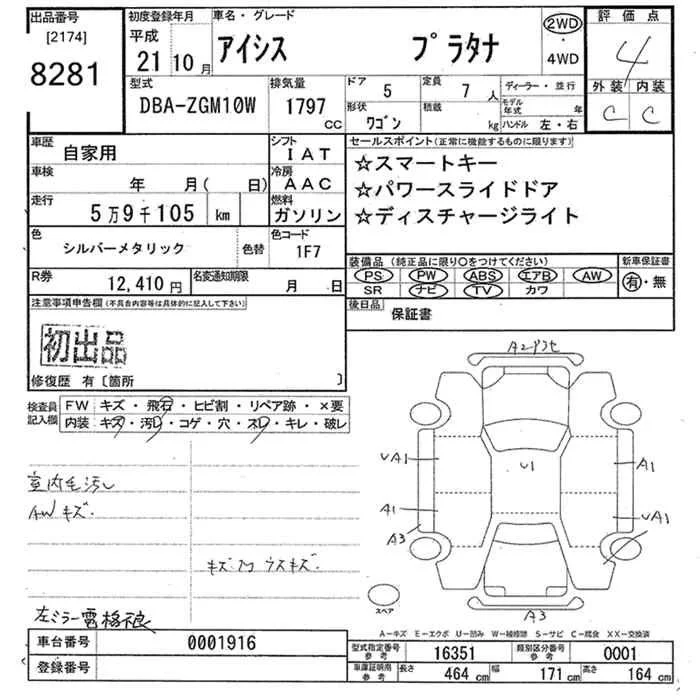 出品番号 [2174] 8281
初度登録年月 平成 21 10 月
車名・グレード アイシス プラタナ
2WD・4WD
評価点 4
外装 内装
C C
型式 DBA-ZGM10W
排気量 1797 CC
ドア 5
定員 7 人
ディーラー・並行
形状 ワゴン
積載 kg
モデル年式 年
ハンドル 左・右
車歴 自家用
シフト IAT
車検 年 月( 日)
冷房 AAC
走行 5万9千105 km
燃料 ガソリン
色 シルバーメタリック
色替
色コード 1F7
R券 12,410 円
名変通知期限 月 日
セールスポイント(正常に機能するものに限ります)
☆スマートキー
☆パワースライドドア
☆ディスチャージライト
装備品(純正品に限り○をつけてください)
新車保証書
PS PW ABS エアB AW
SR ナビ TV カワ
有・無
後日品 保証書
注意事項申告欄(不具合内容等は具体的に記入して下さい)
初出品
修復歴 有〔箇所 〕
検査員記入欄
FW キズ・飛石・ヒビ割・リペア跡・×要
内装 キズ・汚レ・コゲ・穴・スレ・キレ・破レ
室内毛汚レ
AWキズ.
左ミラー電格不良
A1
A3
UA1
U1
A1
UA1
A3
スペア
A−キズ E−エクボ U−凹み W−補修跡 S−サビ C−腐食 XX−交換済
車台番号 0001916
登録番号
型式指定番号 参考 16351
類別区分番号 参考 0001
車庫証明用 参考 長さ 464 cm 幅 171 cm 高さ 164 cm